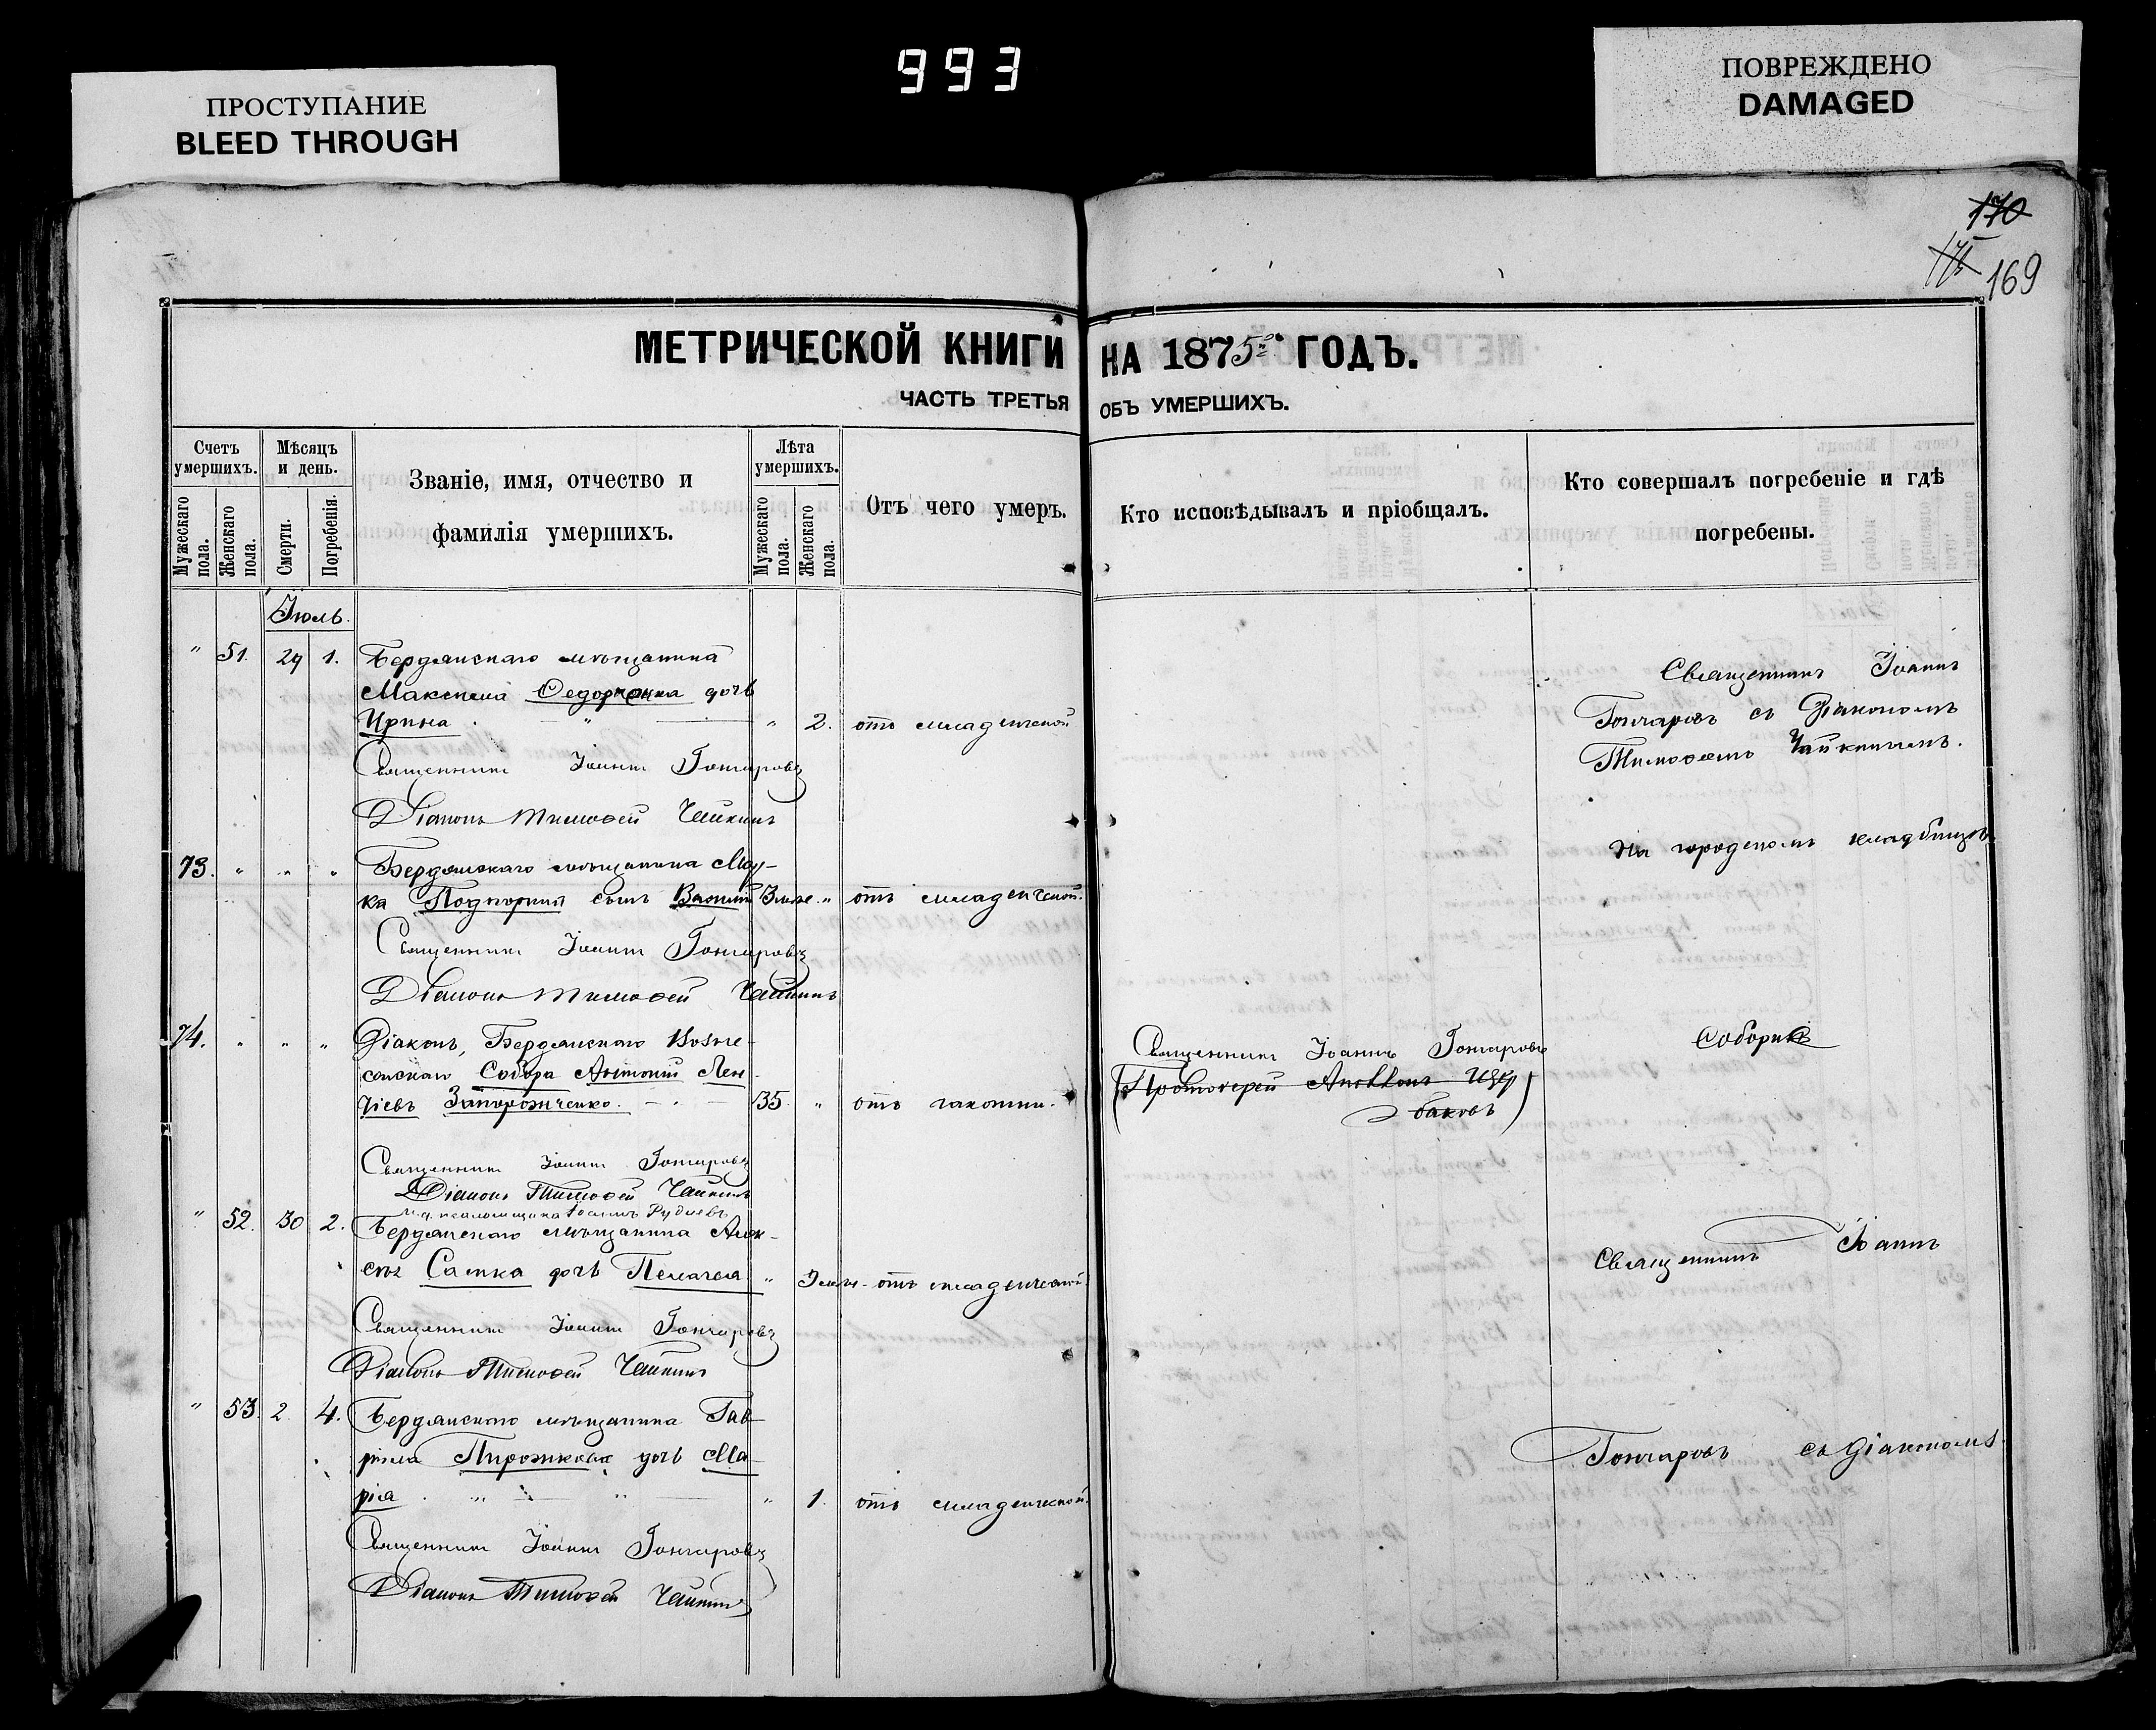 993
ПРОСТУПАНИЕ
BLEED THROUGH
ПОВРЕЖДЕНО
DAMAGED
170
169
МЕТРИЧЕСКОЙ КНИГИ НА 1875 ГОДЪ.
ЧАСТЬ ТРЕТЬЯ ОБЪ УМЕРШИХЪ.
Счетъ умершихъ.
Мужескаго пола.
Женскаго пола.
Мѣсяцъ и день.
Смерти.
Погребенія.
Званіе, имя, отчество и
фамилія умершихъ.
Лѣта умершихъ.
Мужескаго пола.
Женскаго пола.
Отъ чего умеръ.
Кто исповѣдывалъ и пріобщалъ.
Кто совершалъ погребеніе и гдѣ
погребены.
Іюль.
" 51. 29 1. Бердянскаго мѣщанина
Максима Федорченка дочь
Ирина " " 2. отъ младенческой
Священникъ Іоаннъ Гончаровъ
Діаконъ Тимофей Чайкинъ
Священникъ Іоаннъ
Гончаровъ съ Діакономъ
Тимофеемъ Чайкинымъ.
На городскомъ кладбищѣ
73. " " " Бердянскаго мѣщанина Мар-
ка сынъ Василій 3 " отъ младенческой.
Священникъ Іоаннъ Гончаровъ
Діаконъ Тимофей Чайкинъ
74. " " " Діаконъ, Бердянскаго Вознесе-
сенскаго Собора Антоній
Запорожченко. 35. " отъ чахотки.
Священникъ Іоаннъ Гончаровъ
(Протоіерей Щер
баковъ)
Соборнѣ
Священникъ Іоаннъ Гончаровъ
Діаконъ Тимофей Чайкинъ
и. д. псаломщика Іоаннъ Рудневъ
" 52. 30 2. Бердянскаго мѣщанина Алек-
сѣя дочь Пелагея " 3 отъ младенческой.
Священникъ Іоаннъ Гончаровъ
Діаконъ Тимофей Чайкинъ
Священникъ Іоаннъ
" 53. 2 4. Бердянскаго мѣщанина Гав-
ріила Пирожкова дочь Ма-
рія " " " 1. отъ младенческой.
Священникъ Іоаннъ Гончаровъ
Діаконъ Тимофей Чайкинъ
Гончаровъ съ Діакономъ